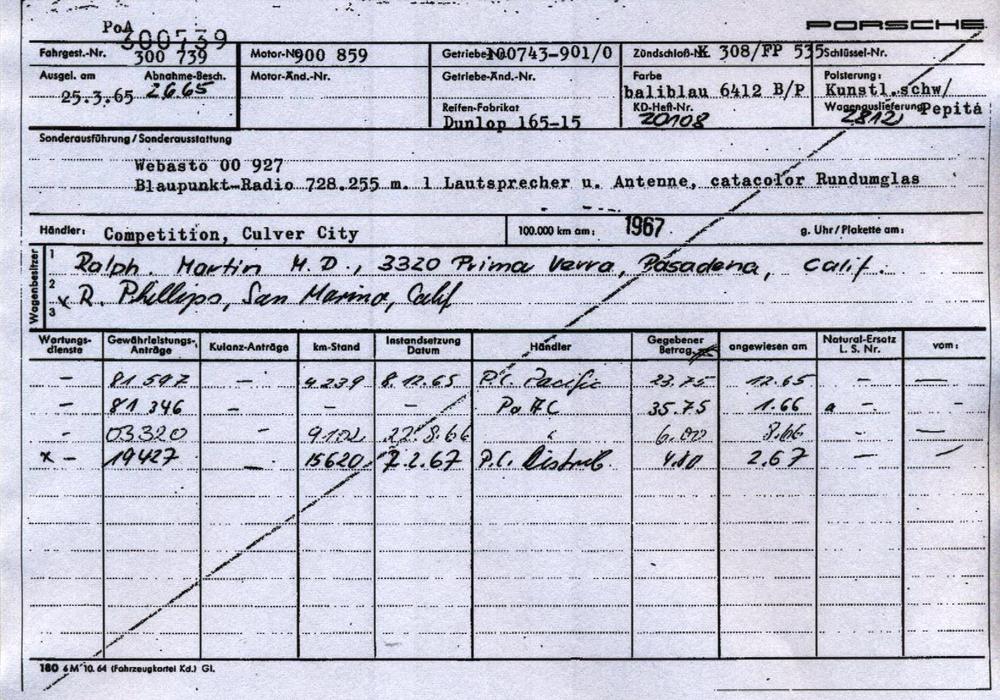 PoA
300539
PORSCHE
Fahrgest.-Nr. 300 739 Motor-Nr. 900 859 Getriebe-Nr. 100743-901/0 Zündschloß-Nr. K 308/FP 535 Schlüssel-Nr.
Ausgel. am Abnahme-Besch. Motor-Änd.-Nr. Getriebe-Änd.-Nr. Farbe Polsterung:
25.3.65 2665 baliblau 6412 B/P Kunstl.schw/
Reifen-Fabrikat KD-Heft-Nr. Wagenauslieferung Pepita
Dunlop 165-15 20108 2812
Sonderausführung/Sonderausstattung
Webasto 00 927
Blaupunkt-Radio 728.255 m. 1 Lautsprecher u. Antenne, catacolor Rundumglas
Händler: Competition, Culver City 100.000 km am: 1967 g. Uhr/Plakette am:
Wagenbesitzer
1 Ralph. Martin M.D., 3320 Prima Verra, Pasadena, Calif.
2 x R. Phillips, San Marino, Calif
3
Wartungs-dienste Gewährleistungs-Anträge Kulanz-Anträge km-Stand Instandsetzung Datum Händler Gegebener Betrag angewiesen am Natural-Ersatz L. S. Nr. vom:
– 81 597 – 4239 8.12.65 P.C. Pacific 23.75 12.65 – –
– 81 346 – – – Po AC 35.75 1.66 – –
– 03320 – 9102 22.8.66 " 6.00 8.66 – –
x – 19427 – 15620 7.2.67 P.C. Distrib. 4.80 2.67 – –
180 6 M 10. 64 (Fahrzeugkartei Kd.) Gl.